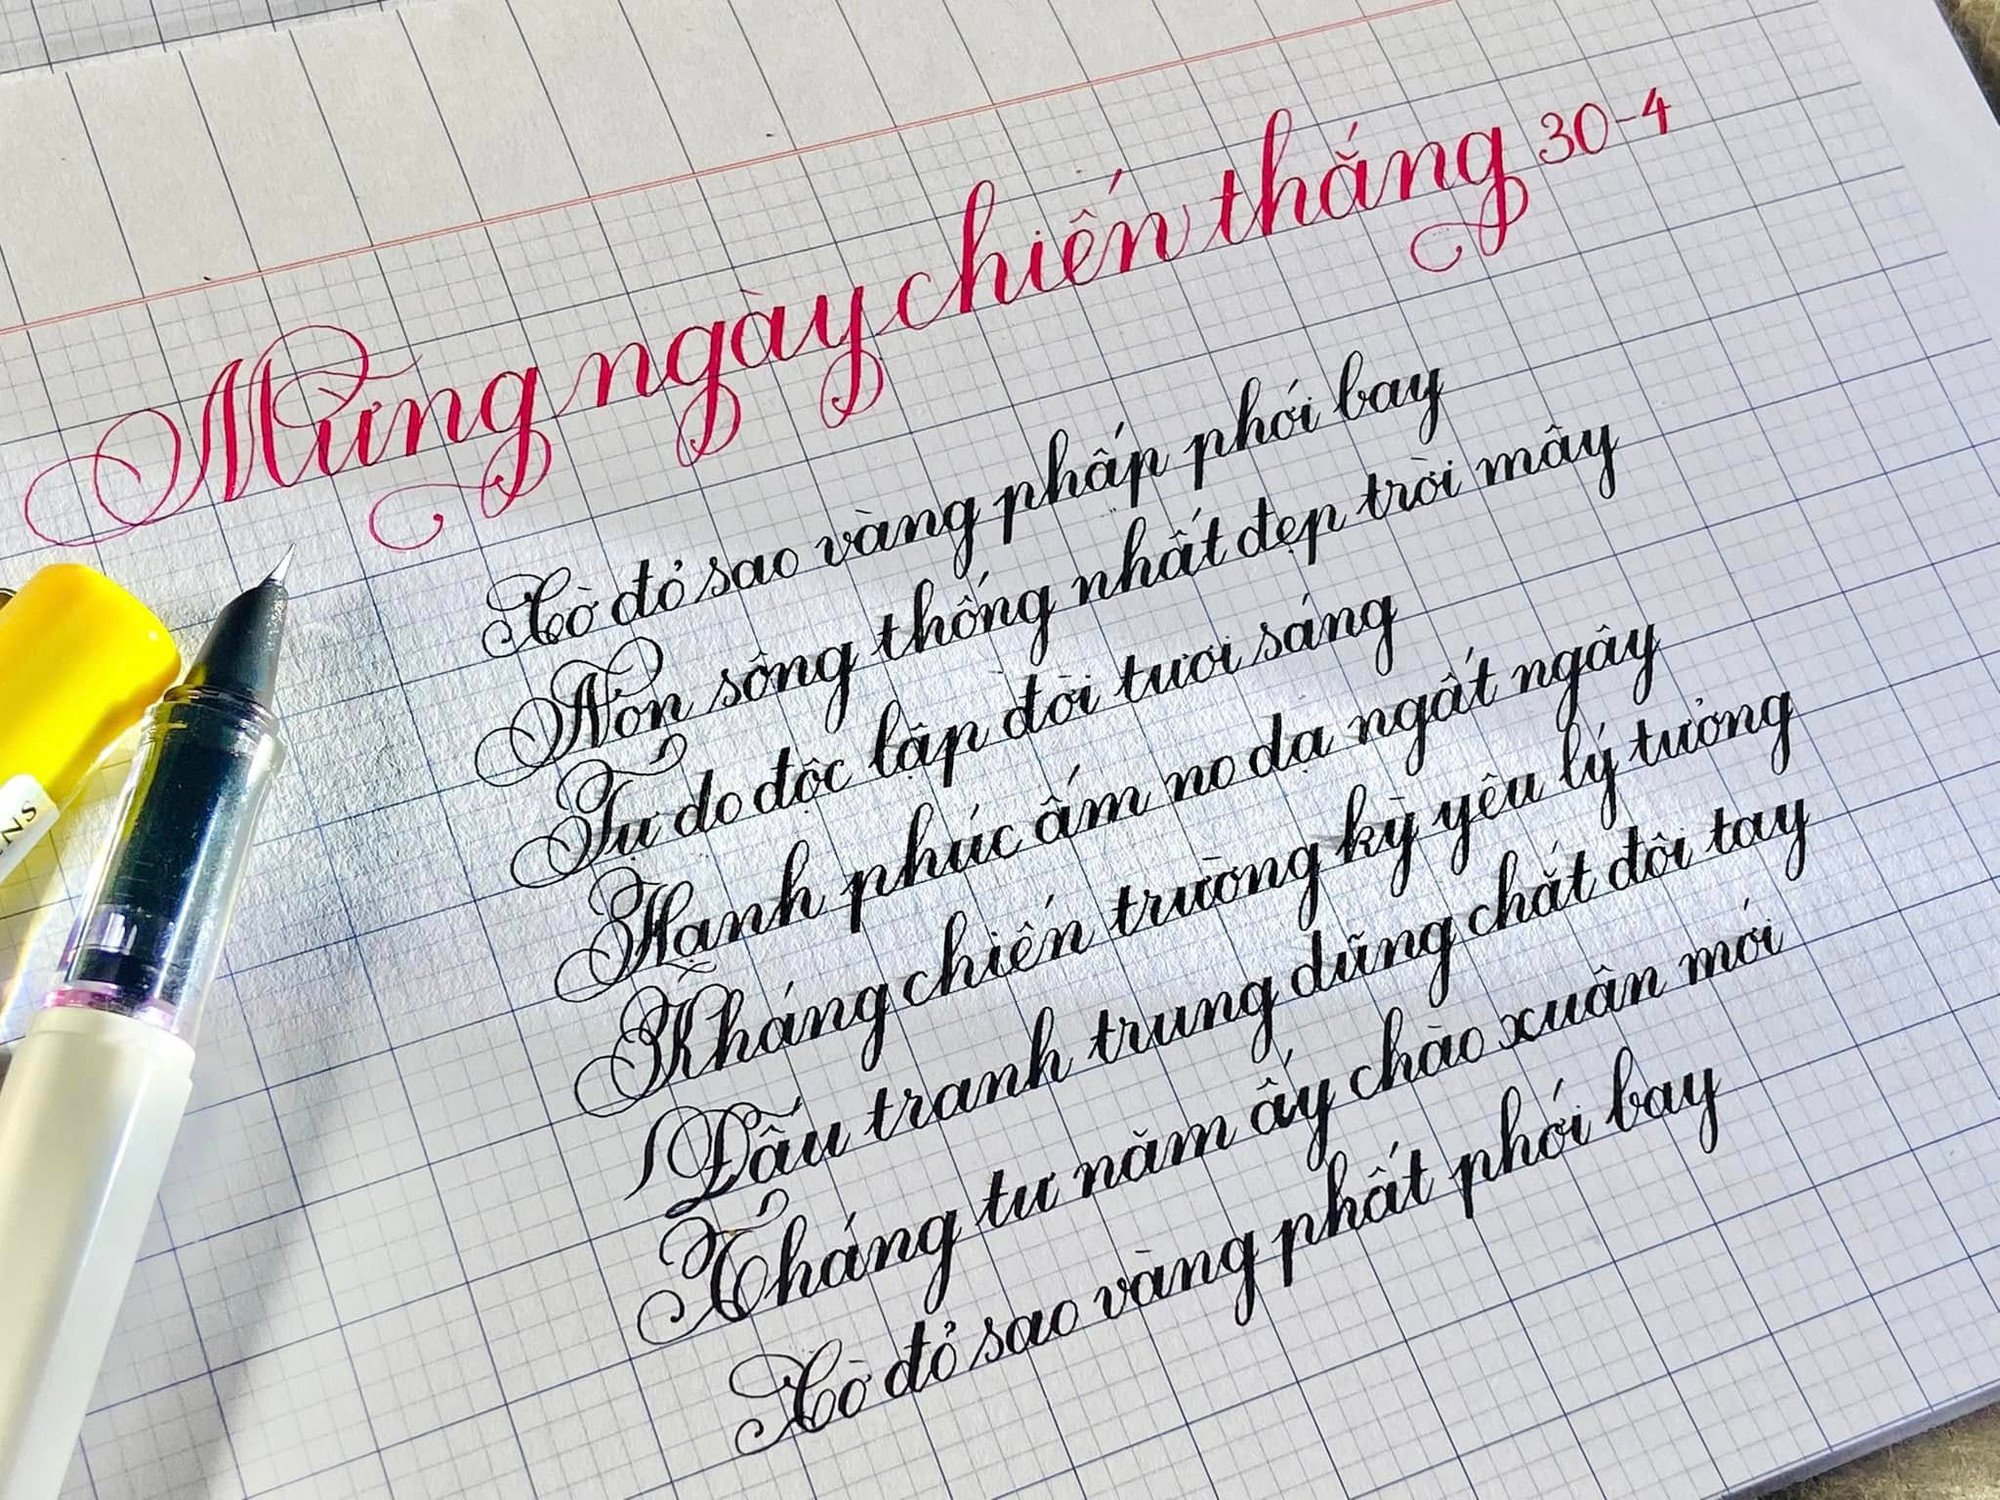 Mừng ngày chiến thắng 30-4
Cờ đỏ sao vàng phấp phới bay
Non sông thống nhất đẹp trời mây
Tự do độc lập đời tươi sáng
Hạnh phúc ấm no dạ ngất ngây
Kháng chiến trường kỳ yêu lý tưởng
Đấu tranh trung dũng chắt đôi tay
Tháng tư năm ấy chào xuân mới
Cờ đỏ sao vàng phất phới bay